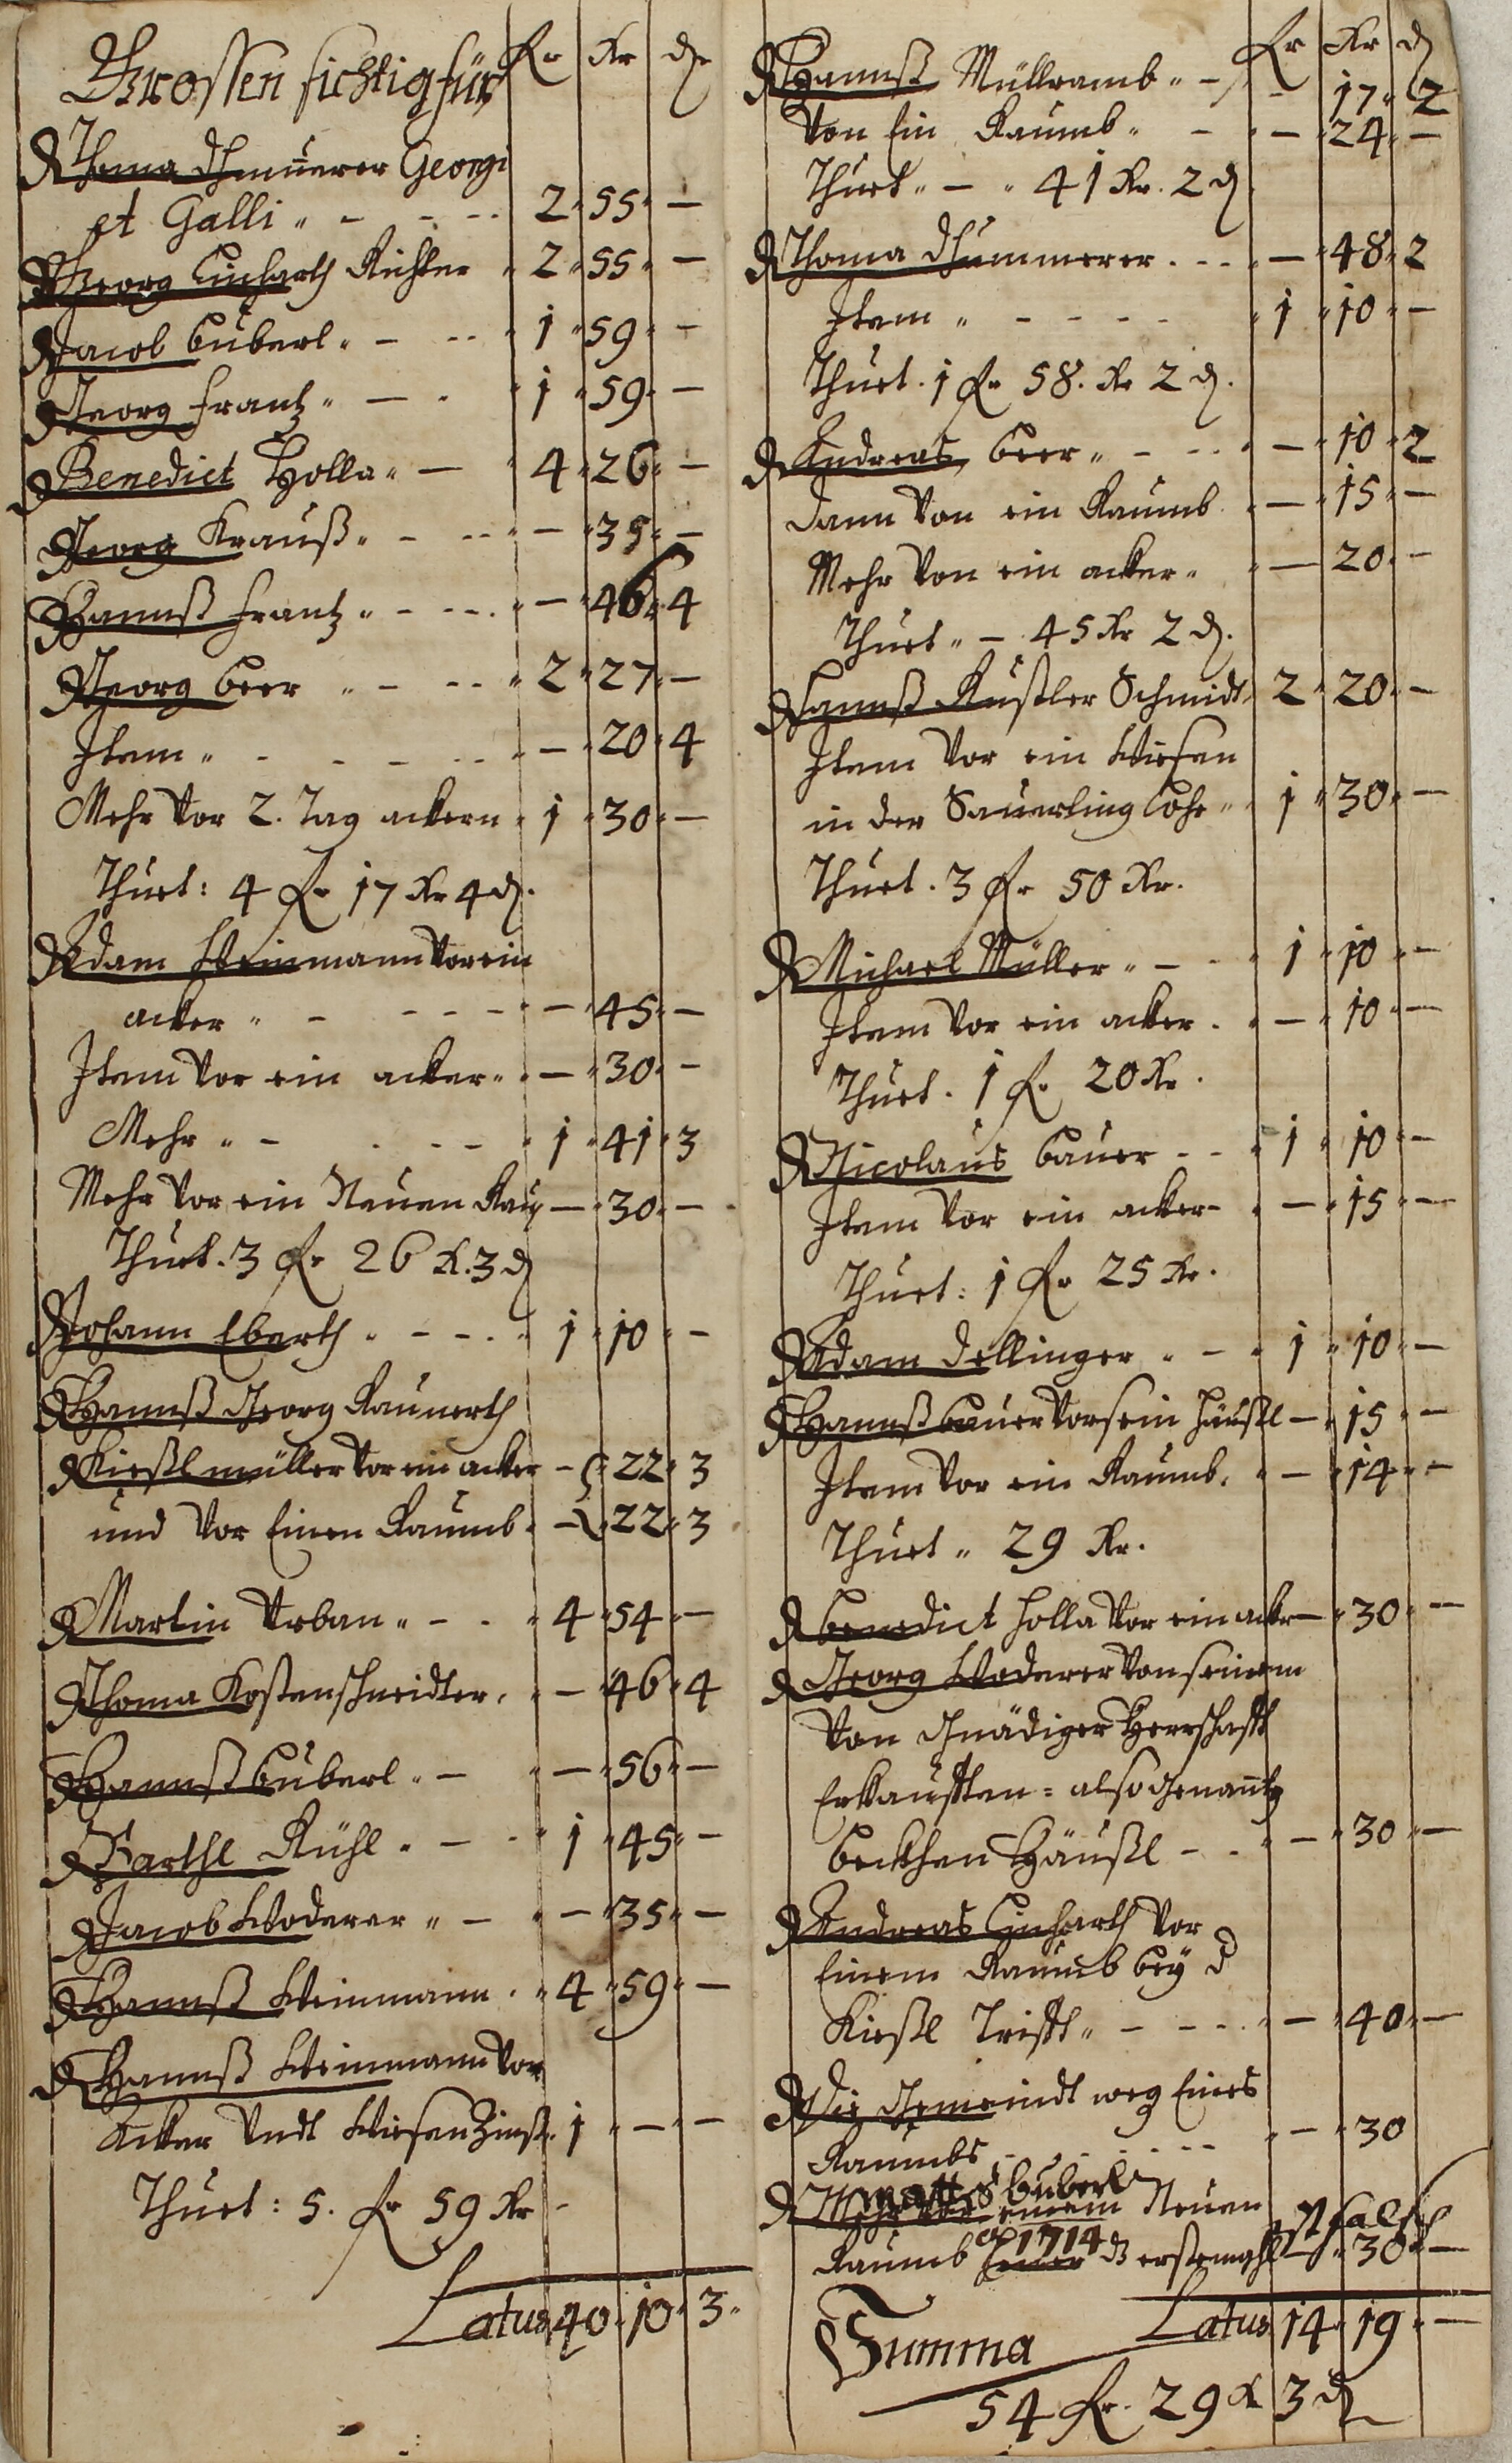 Grossen sichtig für | fr | Kr | d
Thoma Thumerer Georgi
et Galli „ - - - 2 „ 55 „ —
Georg Linharth Richter „ 2 „ 55 „ —
Jacob Büberl „ - - - 1 „ 59 „ —
Georg Frantz „ — - „ 1 „ 59 „ —
Benedict Holla „ — „ 4 „ 26 „ —
Georg Krauß „ - - - „ — „ 35 „ —
Hannß Frantz „ - - - „ — „ 46 „ 4
Georg Beer „ - - - „ 2 „ 27 „ —
Item „ - - - - - „ — „ 20 „ 4
Mehr Vor 2. Tag ackern „ 1 „ 30 „ —
Thuet: 4 fr 17 Kr 4 d.
Adam Weinmann Vor ein
acker „ - - - - „ — „ 45 „ —
Item Vor ein acker „ „ — „ 30 „ —
Mehr „ - - - - „ 1 „ 41 „ 3
Mehr Vor ein Neuen Rau — „ 30 „ —
Thuet. 3 fr 26 K. 3 d
Johann Eberth „ - - - „ 1 „ 10 „ —
Hannß Georg Raunerth
Kießlmüller Vor ein acker - „ 22 „ 3
und Vor Einen Raumb „ - „ 22 „ 3
Martin Urban „ - - „ 4 „ 54 „ —
Thoma Kostenschneidter „ „ — „ 46 „ 4
Hannß Büberl „ — „ — „ 56 „ —
Barthl Rühl „ — - „ 1 „ 45 „ —
Jacob Woderer „ — „ — „ 35 „ —
Hannß Weinmann „ „ 4 „ 59 „ —
Hannß Weinmann Vor
Acker Undt Wiesen Zinß „ 1 „ — „ —
Thuet: 5. fr 59 Kr -
Latus 40 „ 10 „ 3 „
fr | Kr | d
Hannß Müllramb „ - - 17 „ 2
Von Ein Raumb „ - „ — „ 24 „ —
Thuet „ — „ 41 Kr. 2 d
Thoma Thummerer . - - „ — „ 48 „ 2
Item „ - - - - „ 1 „ 10 „ —
Thuet. 1 fr 58. Kr 2 d.
Andreas Beer „ - - - „ — „ 10 „ 2
Dann Von ein Raumb „ — „ 15 „ —
Mehr Von ein acker „ „ — 20 „ —
Thuet „ — 45 Kr 2 d.
Hannß Rußler Schmidt 2 „ 20 „ —
Item Vor ein Wiesen
in der Sauerling Lohe „ „ 1 „ 30 „ —
Thuet. 3 fr 50 Kr.
Michael Müller „ - - „ 1 „ 10 „ —
Item Vor ein acker . „ — „ 10 „ —
Thuet. 1 fr 20 Kr.
Nicolaus Bauer - - „ 1 „ 10 „ —
Item Vor ein acker - „ — „ 15 „ —
Thuet: 1 fr 25 Kr.
Adam Dellinger „ - „ 1 „ 10 „ —
Hannß Bauer Vor sein Häußl — „ 15 „ —
Item Vor ein Raumb. „ — „ 14 „ —
Thuet „ 29 Kr.
Benedict Holla Vor ein acker — „ 30 „ —
Georg Woderer Von seinem
Von Gnädiger Herrschafft
Erkaufften = also genannt
Beckhen Häußl - - „ — „ 30 „ —
Andreas Linharth Vor
Einem Raumb bey d
Kießl Trifft „ - - - „ — „ 40 „ —
Die Gemeindt weg Eines
Raumbs - - - - „ — „ 30
Matts Büberl
Mehr einem Neuen ist falsch
ao 1714
Raumb erstemahl — „ 30 „ —
Latus 14 „ 19 „ —
Summa
54 fr. 29 K 3 d